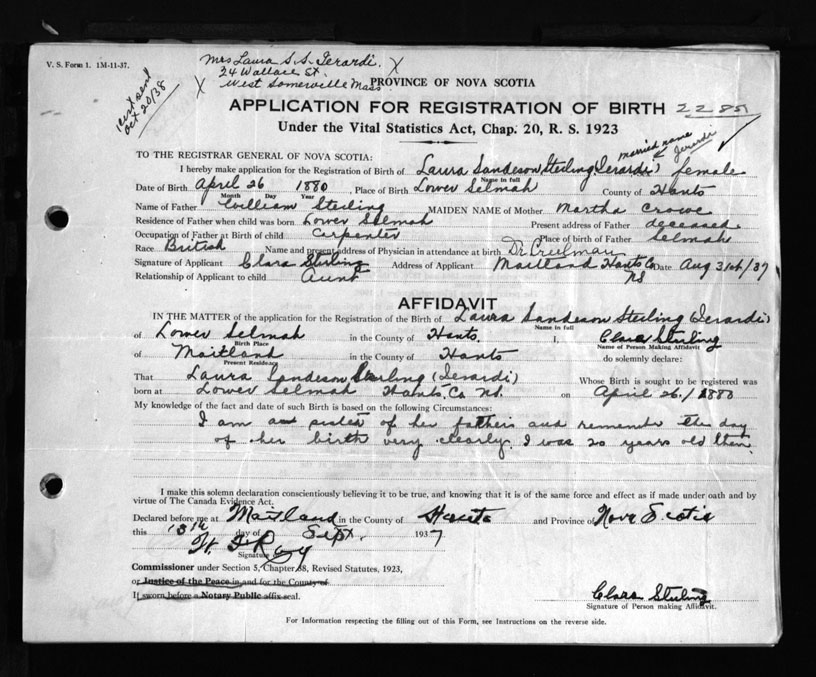 V. S. Form 1. 1M-11-37.
Mrs Laura S. S. Ierardi.
24 Wallace St.
West Somerville Mass.
cert sent
Oct 20/38
PROVINCE OF NOVA SCOTIA
APPLICATION FOR REGISTRATION OF BIRTH 2285
Under the Vital Statistics Act, Chap. 20, R. S. 1923
married name
Ierardi
TO THE REGISTRAR GENERAL OF NOVA SCOTIA:
I hereby make application for the Registration of Birth of Laura Sandeson Sterling (Ierardi) female
Name in full
Date of Birth April 26 1880, Place of Birth Lower Selmah County of Hants
Month Day Year
Name of Father William Sterling MAIDEN NAME of Mother Martha Crowe
Residence of Father when child was born Lower Selmah Present address of Father deceased
Occupation of Father at Birth of child Carpenter Place of birth of Father Selmah
Race British Name and present address of Physician in attendance at birth Dr. Creelman
Signature of Applicant Clara Sterling Address of Applicant Maitland Hants Co NS Date Aug 31st/37
Relationship of Applicant to child Aunt
AFFIDAVIT
IN THE MATTER of the application for the Registration of the Birth of Laura Sandeson Sterling (Ierardi)
Name in full
of Lower Selmah in the County of Hants. I, Clara Sterling
Birth Place Name of Person Making Affidavit
of Maitland in the County of Hants do solemnly declare:
Present Residence
That Laura Sandeson Sterling (Ierardi) Whose Birth is sought to be registered was
born at Lower Selmah Hants. Co NS. on April 26./1880
My knowledge of the fact and date of such Birth is based on the following Circumstances:
I am a sister of her fathers and remember the day
of her birth very clearly. I was 20 years old then.
I make this solemn declaration conscientiously believing it to be true, and knowing that it is of the same force and effect as if made under oath and by
virtue of The Canada Evidence Act.
Declared before me at Maitland in the County of Hants and Province of Nova Scotia
this 13th day of Sept. 1937
Ray
Signature
Commissioner under Section 5, Chapter 38, Revised Statutes, 1923,
or Justice of the Peace in and for the County of
If sworn before a Notary Public affix seal.
Clara Sterling
Signature of Person making Affidavit.
For Information respecting the filling out of this Form, see Instructions on the reverse side.